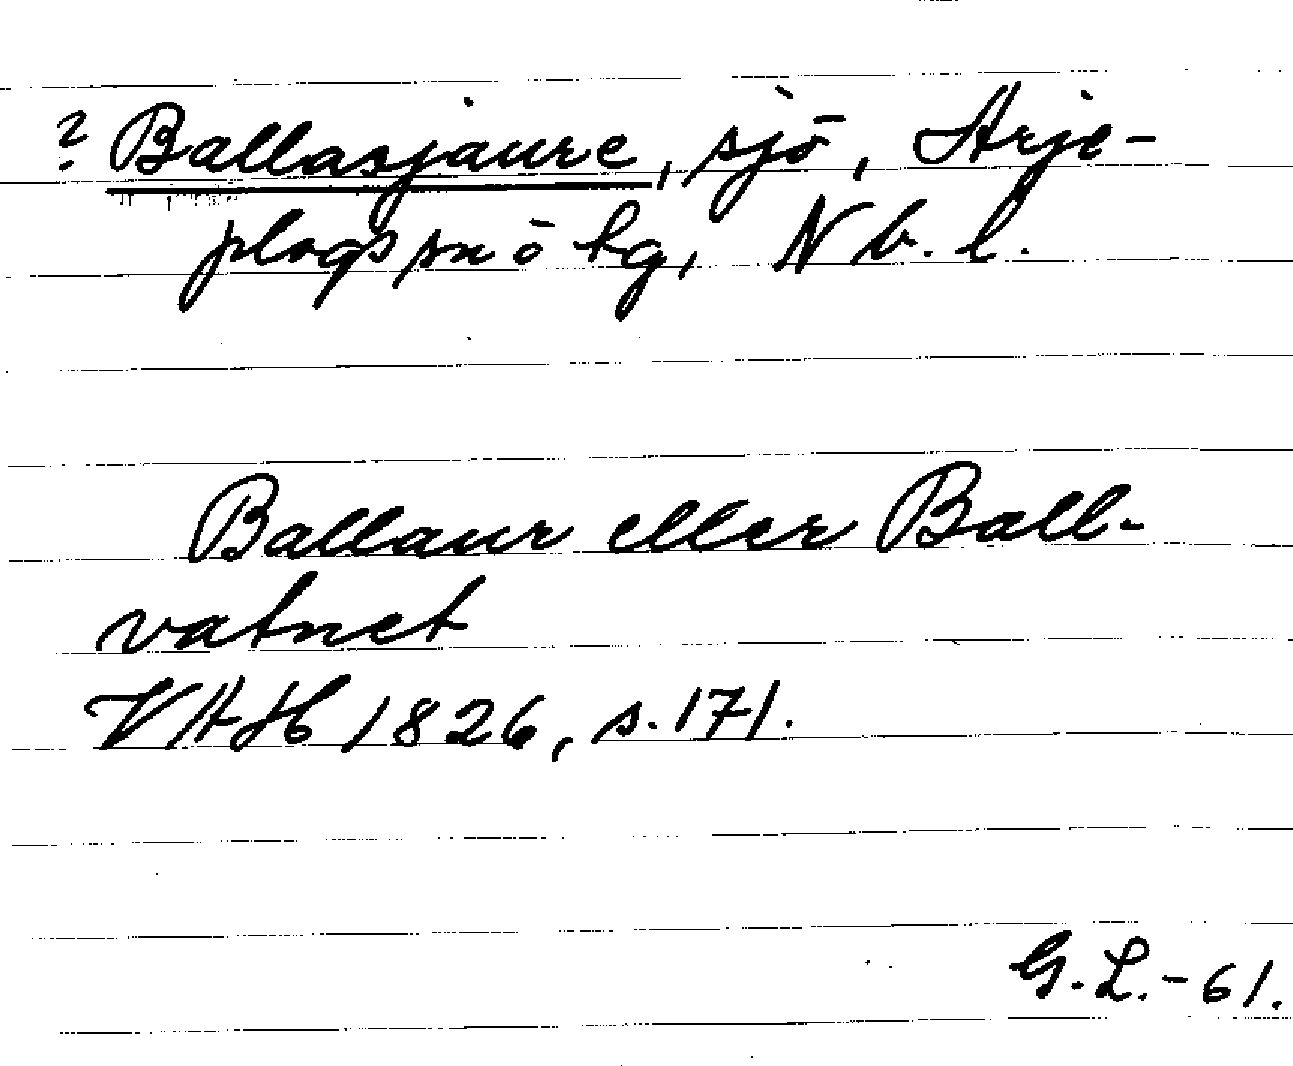 ? Ballasjaure, sjö, Arje-
plogs snö lg, Nb. l.
Ballaur eller Ball-
vatnet
VAH 1826, s. 171.
G. L. - 61.